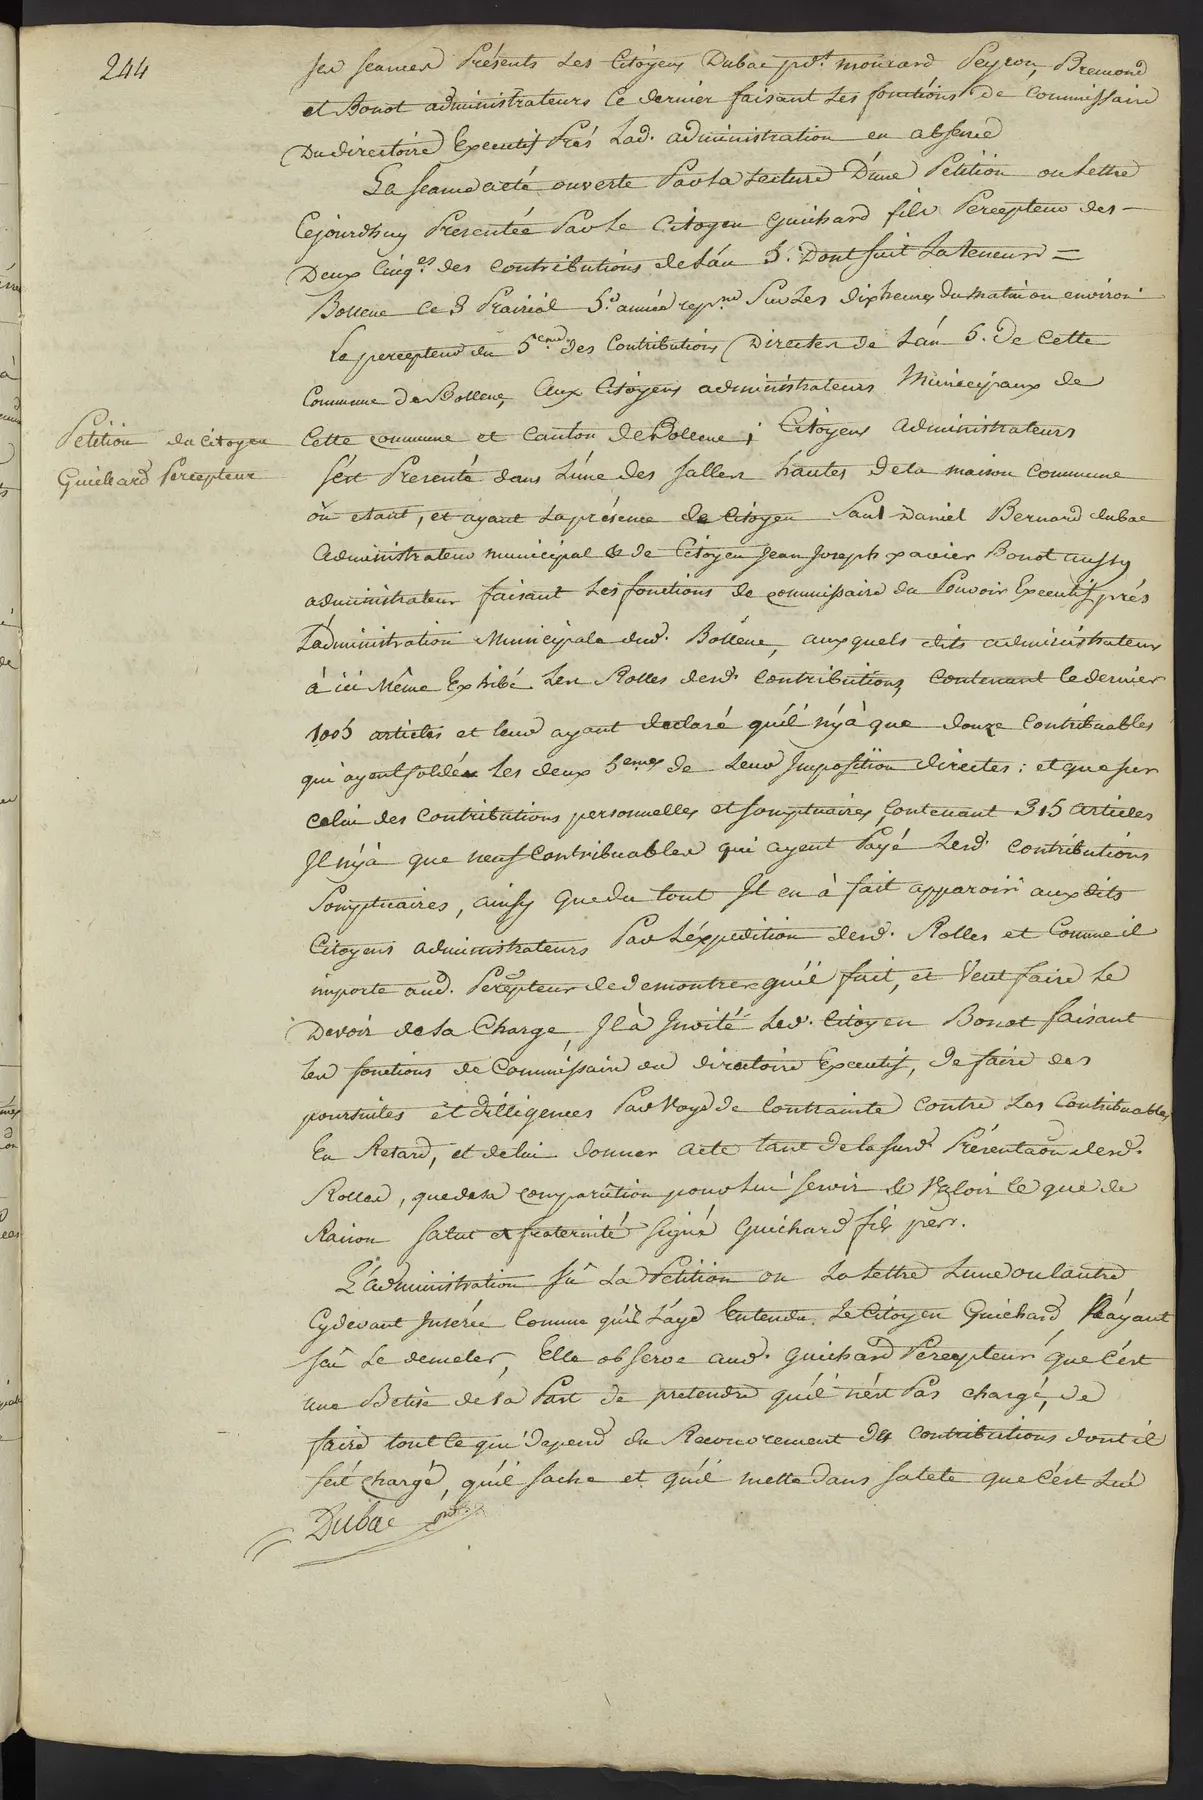 244
ses seances Présents Les Citoyens Dubac pdt. mourard Peyron, Bremond
et Bonot administrateurs Ce dernier faisant Les fonctions de Commissaire
Du directoire Executif Près Lad. administration en absence
La seance a eté ouverte Par La Lecture D'une Petition ou Lettre
Cejourdhuy Presentée Par Le Citoyen Guichard fils Percepteur des
Deux Cinqes. des Contributions de L'an 5. Dont suit La teneur =
Bollene Ce 8 Prairial 5e. année repne. Sur Les dix heures du matin ou environ
Le percepteur du 5eme. des Contributions Directes de L'an 5. de Cette
Commune De Bollene, Aux Citoyens administrateurs Municipaux de
Petition du Citoyen
Guichard Percepteur
Cette Commune et Canton de Bollene; Citoyens administrateurs
S'est Presenté dans L'une des salles hautes de la maison Commune
où etant, et ayant La présence de Citoyen Paul Daniel Bernard dubac
administrateur municipal & de Citoyen Jean Joseph xavier Bonot aussy
administrateur faisant Les fonctions de Commissaire du Pouvoir Executif près
L'administration Municipale dud. Bollène, auxquels dits administrateurs
à ici Même Exhibé Les Rolles desd. Contributions, Contenant le dernier
1005 articles et Leur ayant declaré qu'il n'y à que douze Contribuables
qui ayent soldé Les deux 5emes de Leur Imposition directes: et que sur
Celui des Contributions personnelles et somptuaires, Contenant 315 articles
Il n'y à que neuf Contribuables qui ayent Payé Lesd. Contributions
Somptuaires, ainsy que du tout Il en à fait apparoir auxdits
Citoyens administrateurs Par L'expedition desd. Rolles et Comme il
importe aud. Percepteur de demontrer qu'il fait, et Veut faire Le
Devoir de sa Charge, Il à Invité Led. Citoyen Bonot faisant
Les fonctions de Commissaire du directoire Executif, de faire des
poursuites et dilligences Par Voye de Contrainte Contre Les Contribuables
En Retard, et de lui donner acte tant de la susd. Présentaon desd.
Rolles, que de sa Comparution pour Lui servir & Valoir Ce que de
Raison Salut et fraternité Signé Guichard fils per.
L'administration sû La Petition ou La Lettre L'une ou L'autre
Cydevant Inserée Comme qu'il L'aye Entendu Le Citoyen Guichard,
sû Le demeler, Elle observe aud. Guichard Percepteur que C'est
une Betise de sa Part de pretendre qu'il n'est Pas chargé, de
faire tout Ce qui depend du Recouvrement des Contributions dont il
s'est chargé, qu'il sache et qu'il mette dans sa tete que C'est Lui
Dubac pdt.